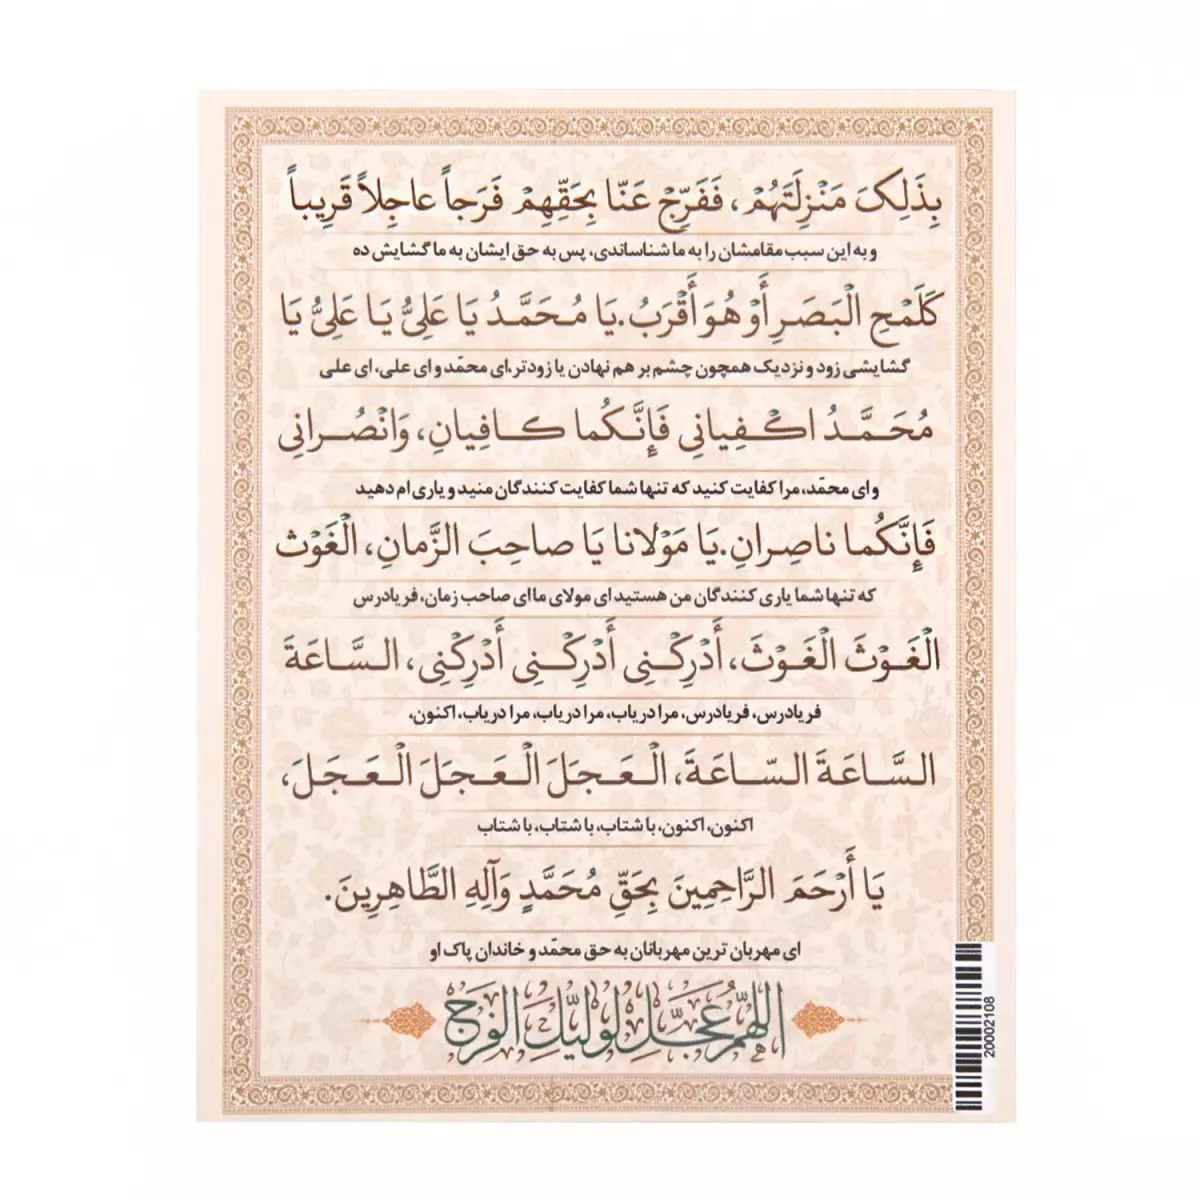 بِذَلِکَ مَنْزِلَتَهُمْ، فَفَرِّجْ عَنّا بِحَقِّهِمْ فَرَجاً عاجِلاً قَرِیباً
و به این سبب مقامشان را به ما شناساندی، پس به حق ایشان به ما گشایش ده
کَلَمْحِ الْبَصَرِ أَوْ هُوَ أَقْرَبُ. یَا مُحَمَّدُ یَا عَلِیُّ یَا عَلِیُّ یَا
گشایشی زود و نزدیک همچون چشم بر هم نهادن یا زودتر، ای محمّد و ای علی، ای علی
مُحَمَّدُ اکْفِیانِی فَإِنَّکُما کافِیانِ، وَانْصُرانِی
و ای محمّد، مرا کفایت کنید که تنها شما کفایت کنندگان منید و یاری ام دهید
فَإِنَّکُما ناصِرانِ. یَا مَوْلانا یَا صاحِبَ الزَّمانِ، الْغَوْثَ
که تنها شما یاری کنندگان من هستید ای مولای ما ای صاحب زمان، فریادرس
الْغَوْثَ الْغَوْثَ، أَدْرِکْنِی أَدْرِکْنِی أَدْرِکْنِی، السَّاعَةَ
فریادرس، فریادرس، مرا دریاب، مرا دریاب، مرا دریاب، اکنون،
السَّاعَةَ السّاعَةَ، الْعَجَلَ الْعَجَلَ الْعَجَلَ،
اکنون، اکنون، با شتاب، با شتاب، با شتاب
یَا أَرْحَمَ الرَّاحِمِینَ بِحَقِّ مُحَمَّدٍ وَآلِهِ الطَّاهِرِینَ.
ای مهربان ترین مهربانان به حق محمّد و خاندان پاک او
اللهُمَّ عَجِّل لِوَلیِّكَ الفَرَج
20002108